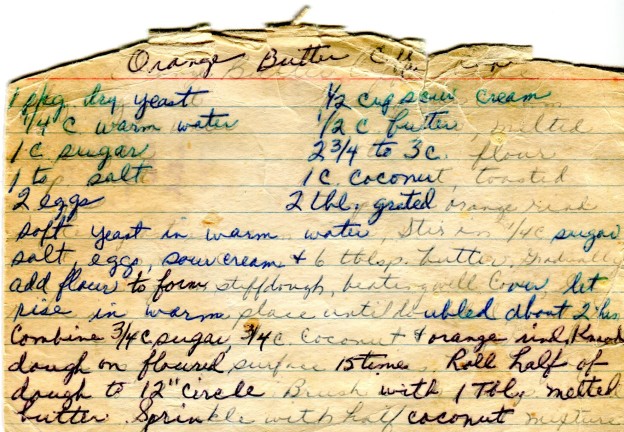 Orange Butter Coffee
1 pkg. dry yeast 1/2 cup sour cream
1/4 c warm water 1/2 c butter, melted
1 c sugar 2 3/4 to 3 c. flour
1 tsp salt 1 c. coconut, toasted
2 eggs 2 tbls grated orange rind
soft yeast in warm water Stir in 1/4 c sugar
salt, eggs, sour cream & 6 tblsp. butter. Gradually
add flour to form stiff dough, beating well Cover let
rise in warm place until doubled about 2 hrs
Combine 3/4 c sugar, 3/4 c. coconut & orange rind, Knead
dough on floured surface 15 times. Roll half of
dough to 12" circle Brush with 1 Tbls melted
butter. Sprinkle with half coconut mixture